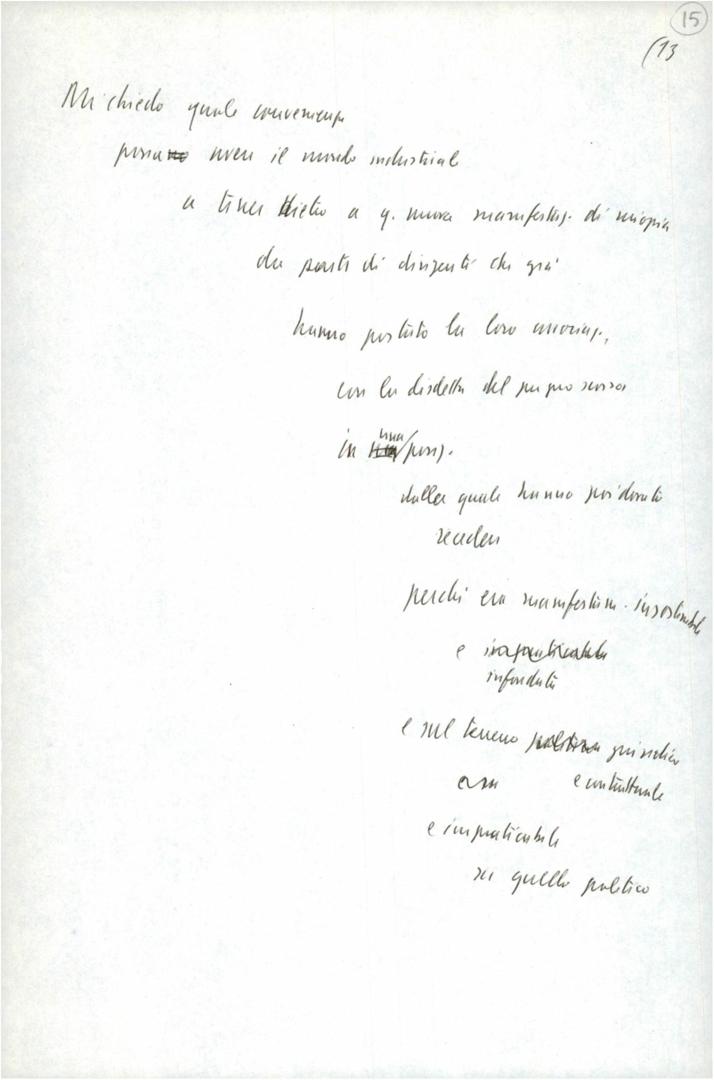 15
(13
Mi chiedo quale convenienza
possa avere il mondo industriale
a tener dietro a q. nuova manifestaz. di miopia
da parte di dirigenti che già
hanno portato la loro
con la disdetta del
in una posiz.
dalla quale hanno poi dovuto
recedere
perché era manifestam. insostenibile
e impraticabile
infondata
e sul terreno politico giuridico
e contrattuale
e impraticabile
su quello politico